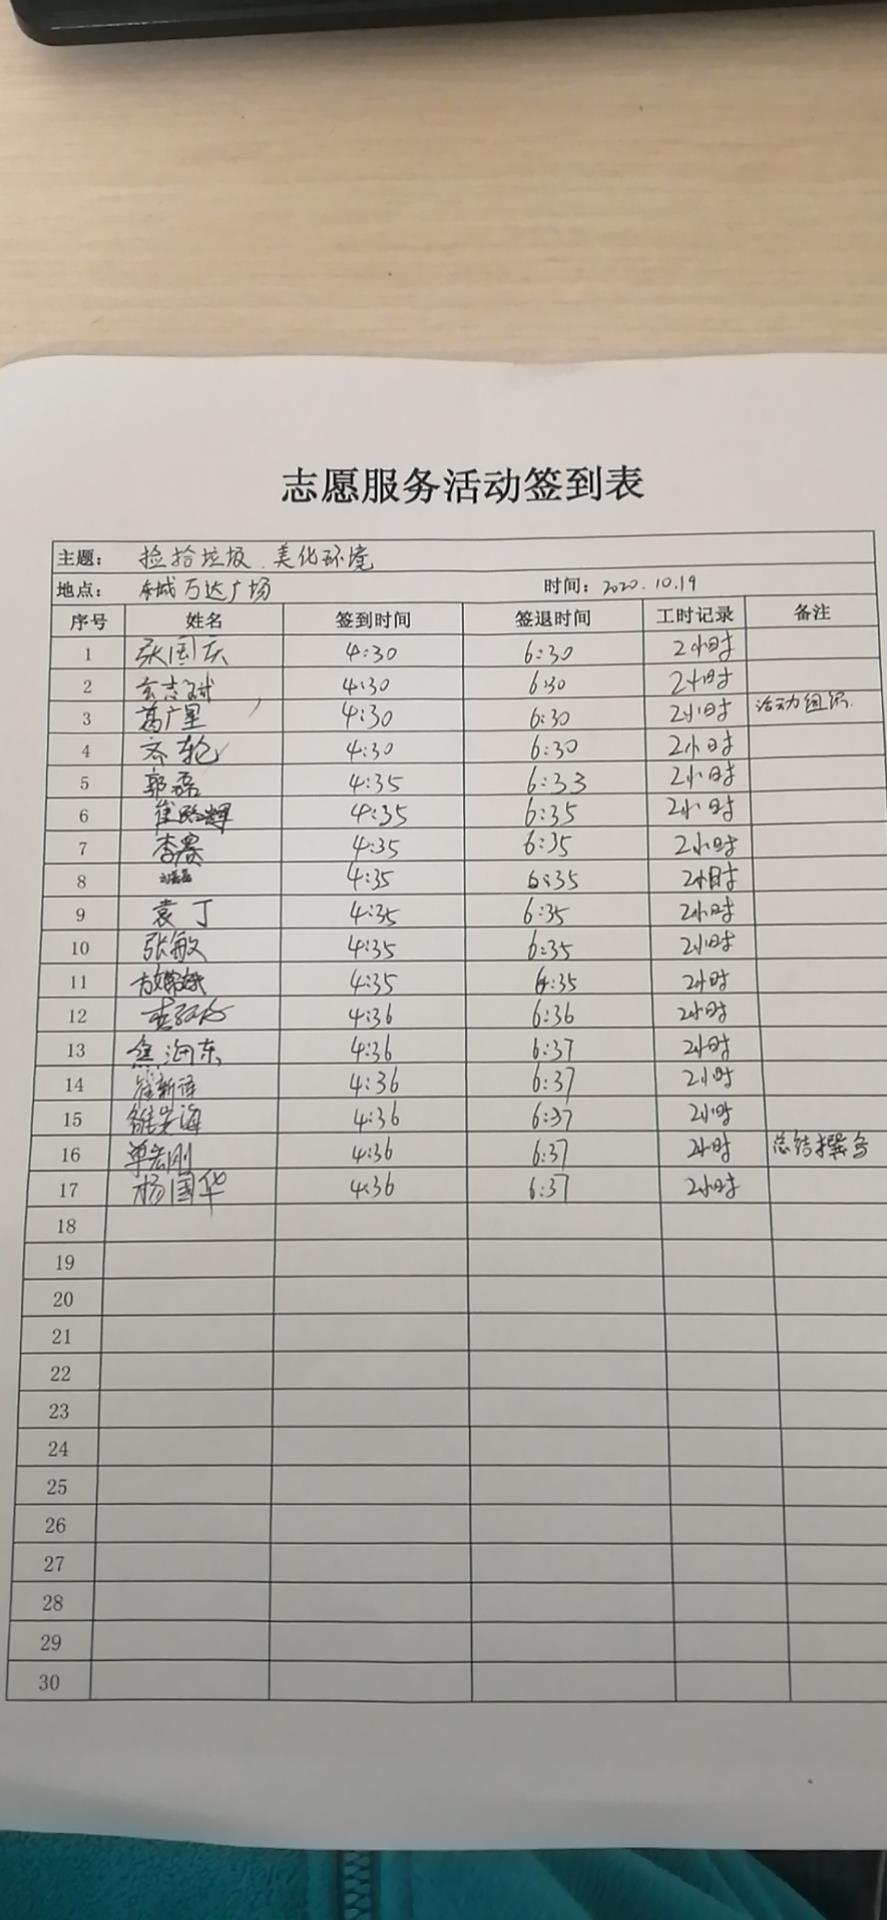 志愿服务活动签到表
主题： 捡拾垃圾.美化环境
地点： 东城万达广场 时间：2020.10.19
序号 姓名 签到时间 签退时间 工时记录 备注
1 张国庆 4:30 6:30 2小时
2 4:30 6:30 2小时
3 葛广星 4:30 6:30 2小时 活动组织.
4 齐轮 4:30 6:30 2小时
5 郭磊 4:35 6:33 2小时
6 崔晓辉 4:35 6:35 2小时
7 李赛 4:35 6:35 2小时
8 4:35 6:35 2小时
9 袁丁 4:35 6:35 2小时
10 张敏 4:35 6:35 2小时
11 4:35 6:35 2小时
12 4:36 6:36 2小时
13 焦海东 4:36 6:37 2小时
14 崔新 4:36 6:37 2小时
15 4:36 6:37 2小时
16 单宏刚 4:36 6:37 2小时 总结撰写
17 杨国华 4:36 6:37 2小时
18
19
20
21
22
23
24
25
26
27
28
29
30